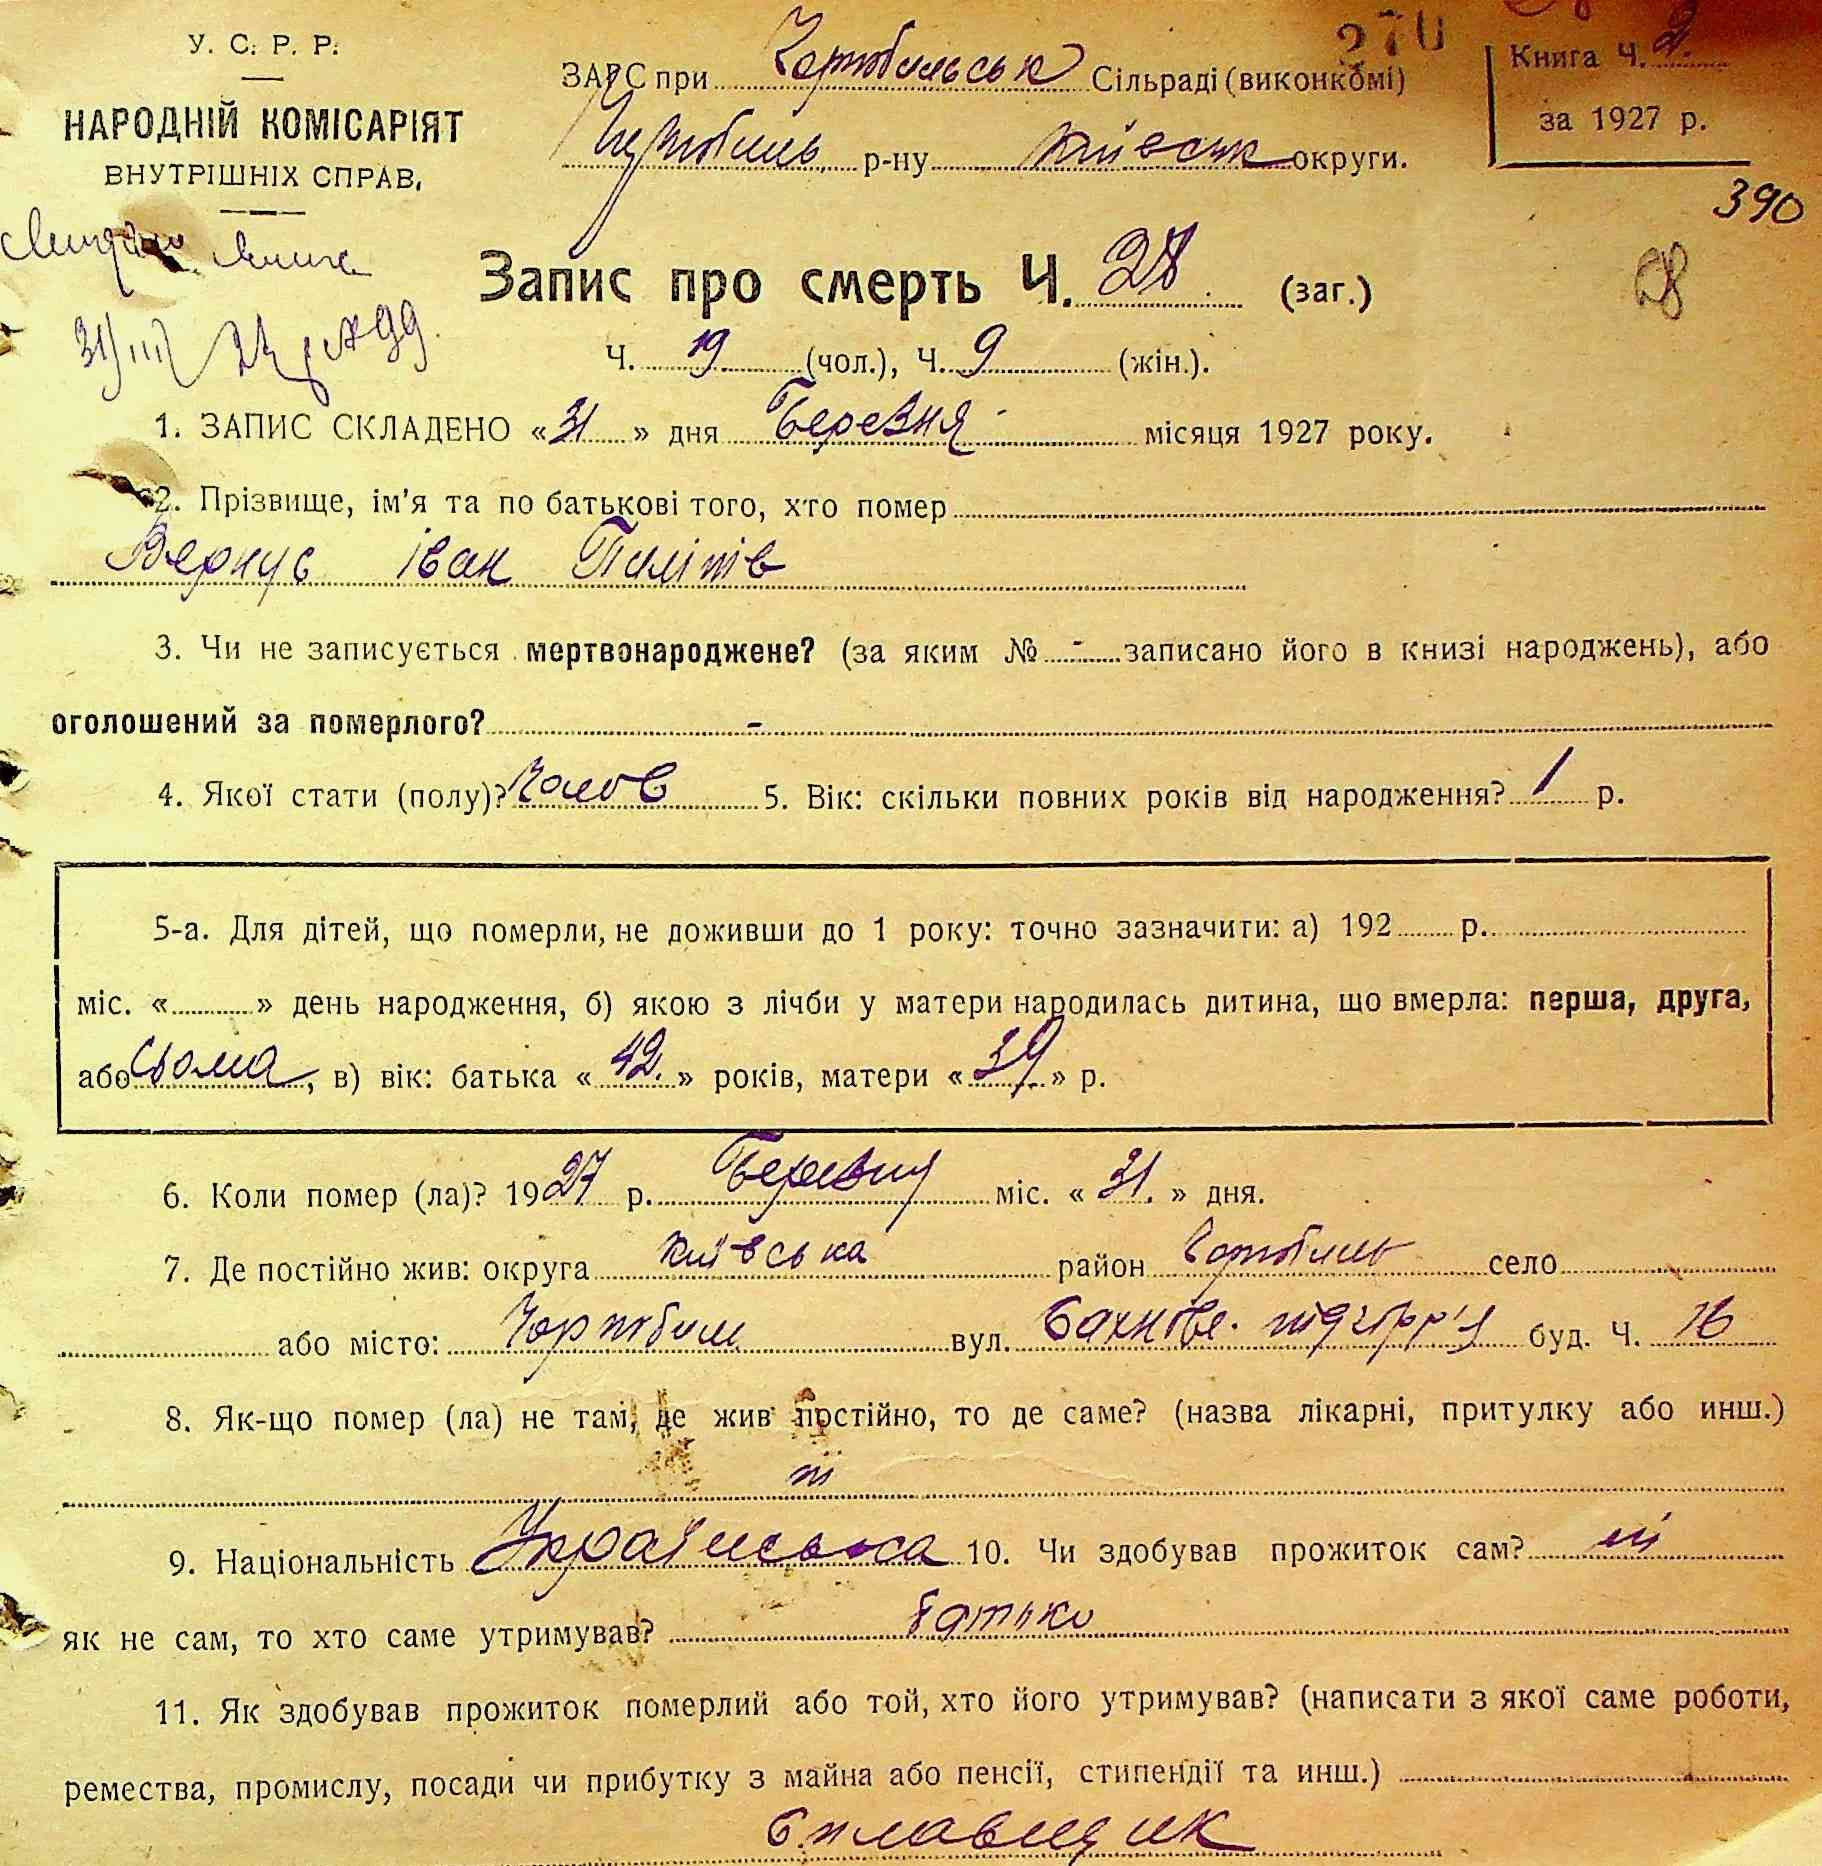 У. С. Р. Р.
НАРОДНІЙ КОМІСАРІЯТ
ВНУТРІШНІХ СПРАВ,
270
ЗАГС при Чорнобильськ Сільраді (виконкомі)
Чорнобиль р-ну Київськ округи.
Книга Ч. 2.
за 1927 р.
390
Запис про смерть Ч. 28 (заг.)
28
Ч. 19 (чол.), Ч. 9 (жін.).
1. ЗАПИС СКЛАДЕНО «31» дня Березня місяця 1927 року.
2. Прізвище, ім'я та по батькові того, хто помер
Іван
3. Чи не записується мертвонароджене? (за яким № - записано його в книзі народжень), або
оголошений за померлого? -
4. Якої стати (полу)? Чолов 5. Вік: скільки повних років від народження? 1 р.
5-а. Для дітей, що померли, не доживши до 1 року: точно зазначити: а) 192 р.
міс. « » день народження, б) якою з лічби у матери народилась дитина, що вмерла: перша, друга,
або сьома, в) вік: батька «42.» років, матери «39» р.
6. Коли помер (ла)? 1927 р. Березня міс. «31.» дня.
7. Де постійно жив: округа Київська район Чорнобиль село
або місто: Чорнобиль вул. підгірр'я буд. Ч. 16
8. Як-що помер (ла) не там, де жив постійно, то де саме? (назва лікарні, притулку або инш.)
ні
9. Національність Українська 10. Чи здобував прожиток сам? ні
як не сам, то хто саме утримував? батько
11. Як здобував прожиток померлий або той, хто його утримував? (написати з якої саме роботи,
ремества, промислу, посади чи прибутку з майна або пенсії, стипендії та инш.)
Сплавщик